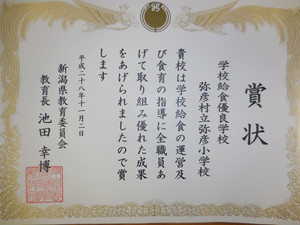 賞状
学校給食優良学校
弥彦村立弥彦小学校
貴校は学校給食の運営及
び食育の指導に全職員あ
げて取り組み優れた成果
をあげられましたので賞
します
平成二十八年十一月二日
新潟県教育委員会
教育長 池田幸博